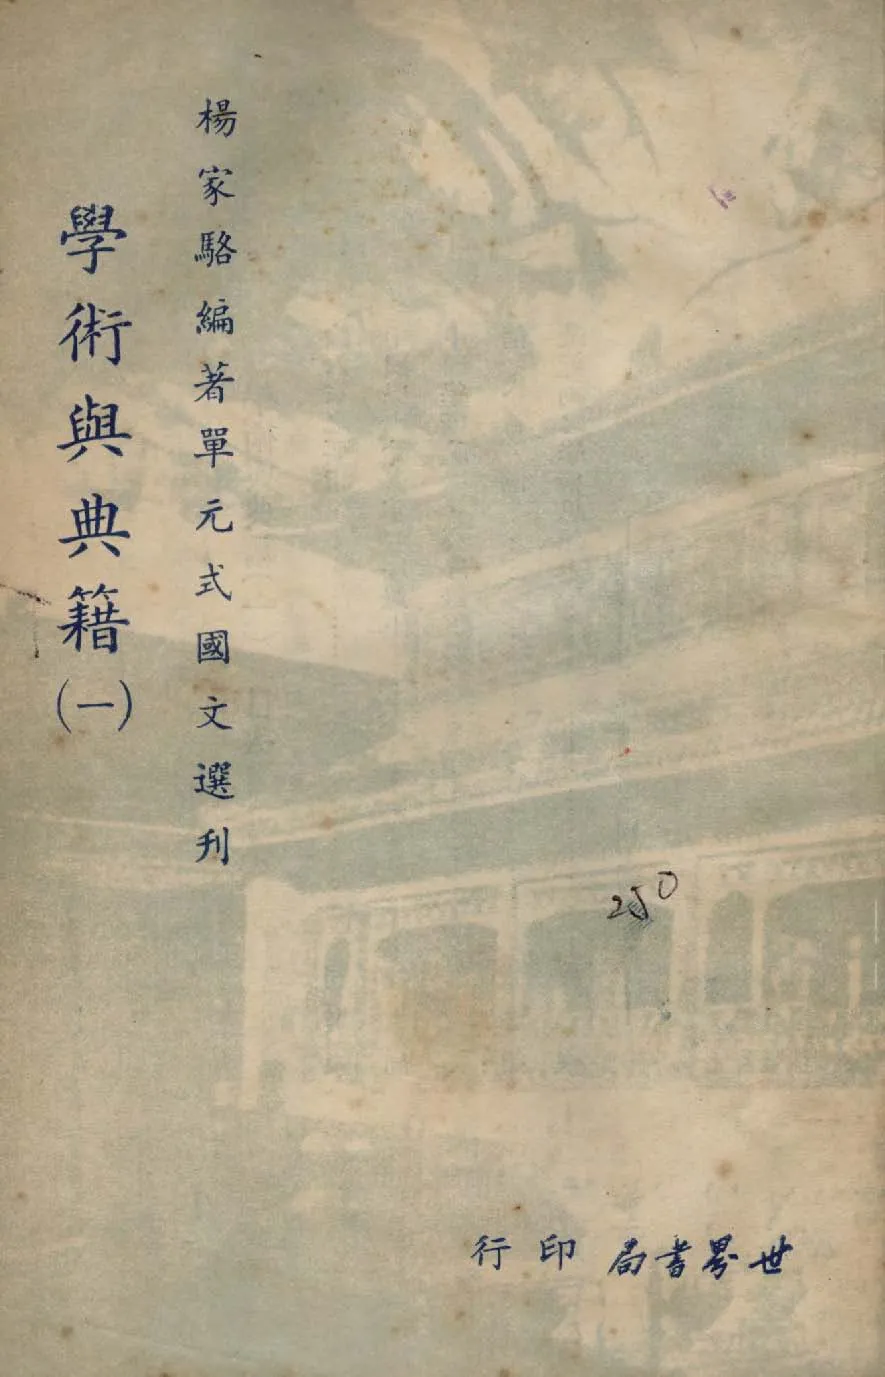 楊家駱編著單元式國文選刊
學術與典籍(一)
250
世界書局印行